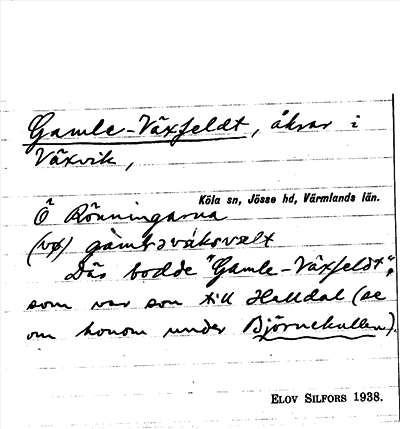 Gamle-Växfeldt, åkrar i
Växvik,
Köla sn, Jösse hd, Värmlands län.
Ö Rönningarna
(vp)
Där bodde "Gamle-Växfeldt",
som var son till Halldal (se
om honom under Björnekullen).
ELOV SILFORS 1938.